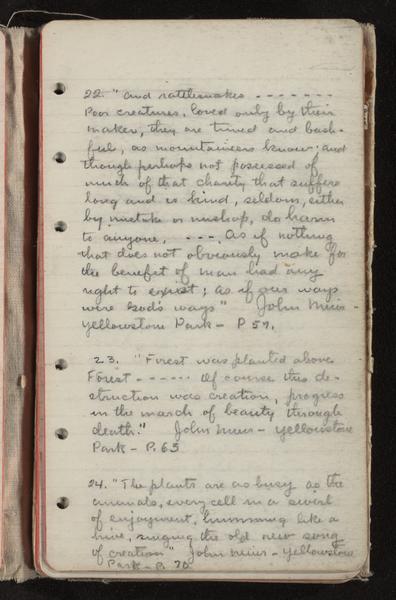 22. "and rattlesnakes - - - - - - -
Poor creatures, loved only by their
maker, they are timid and bash-
ful, as mountaineers know; and
though perhaps not possessed of
much of that charity that suffers
long and is kind, seldom, either
by mistake or mishap, do harm
to anyone, - - - . As if nothing
that does not obviously make for
the benefit of man had any
right to exist; as if our ways
were God's ways" John Muir -
Yellowstone Park - P 57.
23. "Forest was planted above
Forest - - - - - - Of course this de-
struction was creation, progress
in the march of beauty through
death." John Muir - Yellowstone
Park - P. 65
24. "The plants are as busy as the
animals, every cell in a swirl
of enjoyment, humming like a
hive, singing the old new song
of creation" John Muir - Yellowstone
Park - P. 70